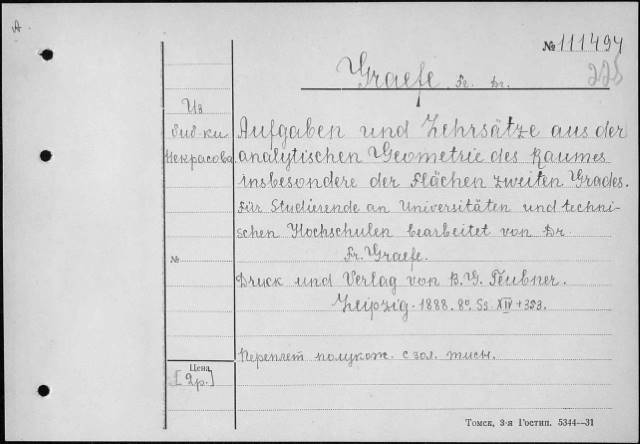 A
№ 111494
225
Graefe, Fr. Dr.
Из
биб-ки
Некрасова
Aufgaben und Lehrsätze aus der
analytischen Geometrie des Raumes
insbesondere der Flächen zweiten Grades.
Für Studierende an Universitäten und techni-
schen Hochschulen bearbeitet von Dr.
Fr. Graefe.
№
Druck und Verlag von B. G. Teubner.
Leipzig. 1888. 8º. Ss XIV + 323.
Переплет полукож. с зол. тисн.
Цена
[2р.]
Томск, 3-я Гостип. 5344—31